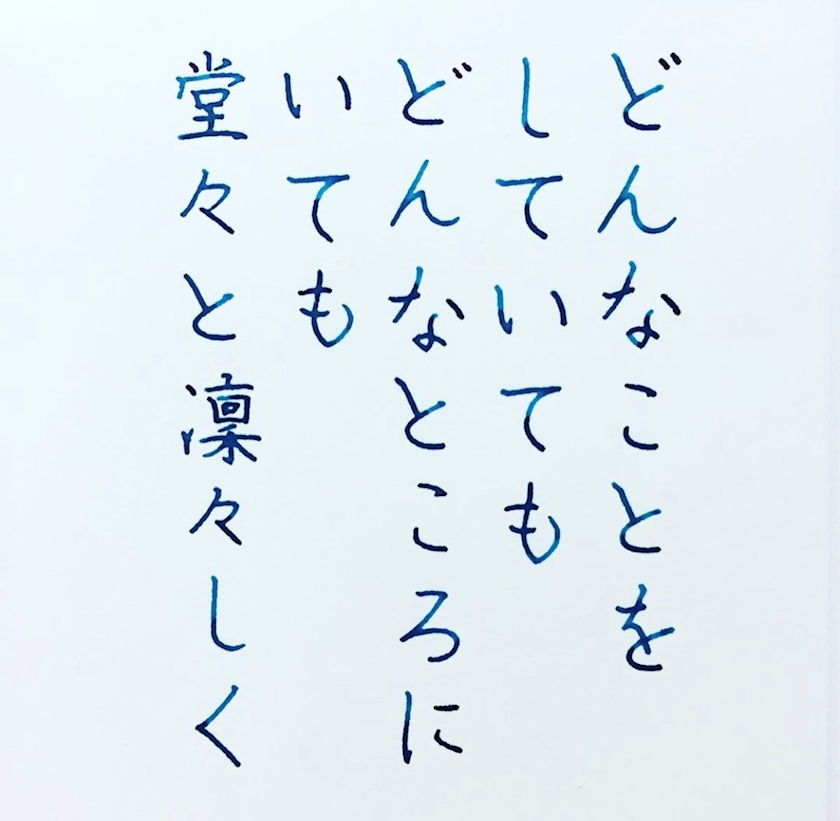 どんなことを
していても
どんなところに
いても
堂々と凛々しく